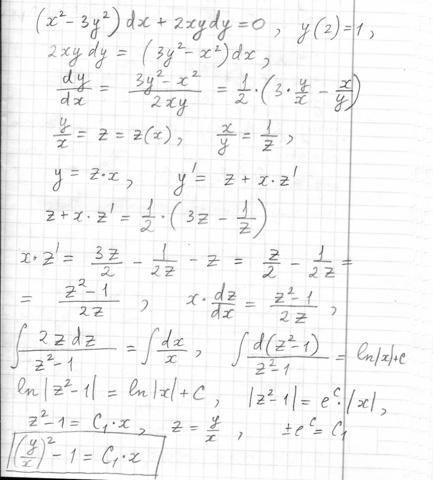 (x² - 3y²) dx + 2xy dy = 0, y(2) = 1,
2xy dy = (3y² - x²) dx,
dy/dx = (3y² - x²)/(2xy) = 1/2 · (3 · y/x - x/y)
y/x = z = z(x), x/y = 1/z,
y = z·x, y' = z + x·z'
z + x·z' = 1/2 · (3z - 1/z)
x·z' = 3z/2 - 1/(2z) - z = z/2 - 1/(2z) =
= (z² - 1)/(2z), x · dz/dx = (z² - 1)/(2z),
∫ 2z dz/(z² - 1) = ∫ dx/x, ∫ d(z² - 1)/(z² - 1) = ln|x| + c
ln|z² - 1| = ln|x| + C, |z² - 1| = e^C · |x|,
z² - 1 = C₁ · x, z = y/x, ±e^C = C₁
(y/x)² - 1 = C₁ · x